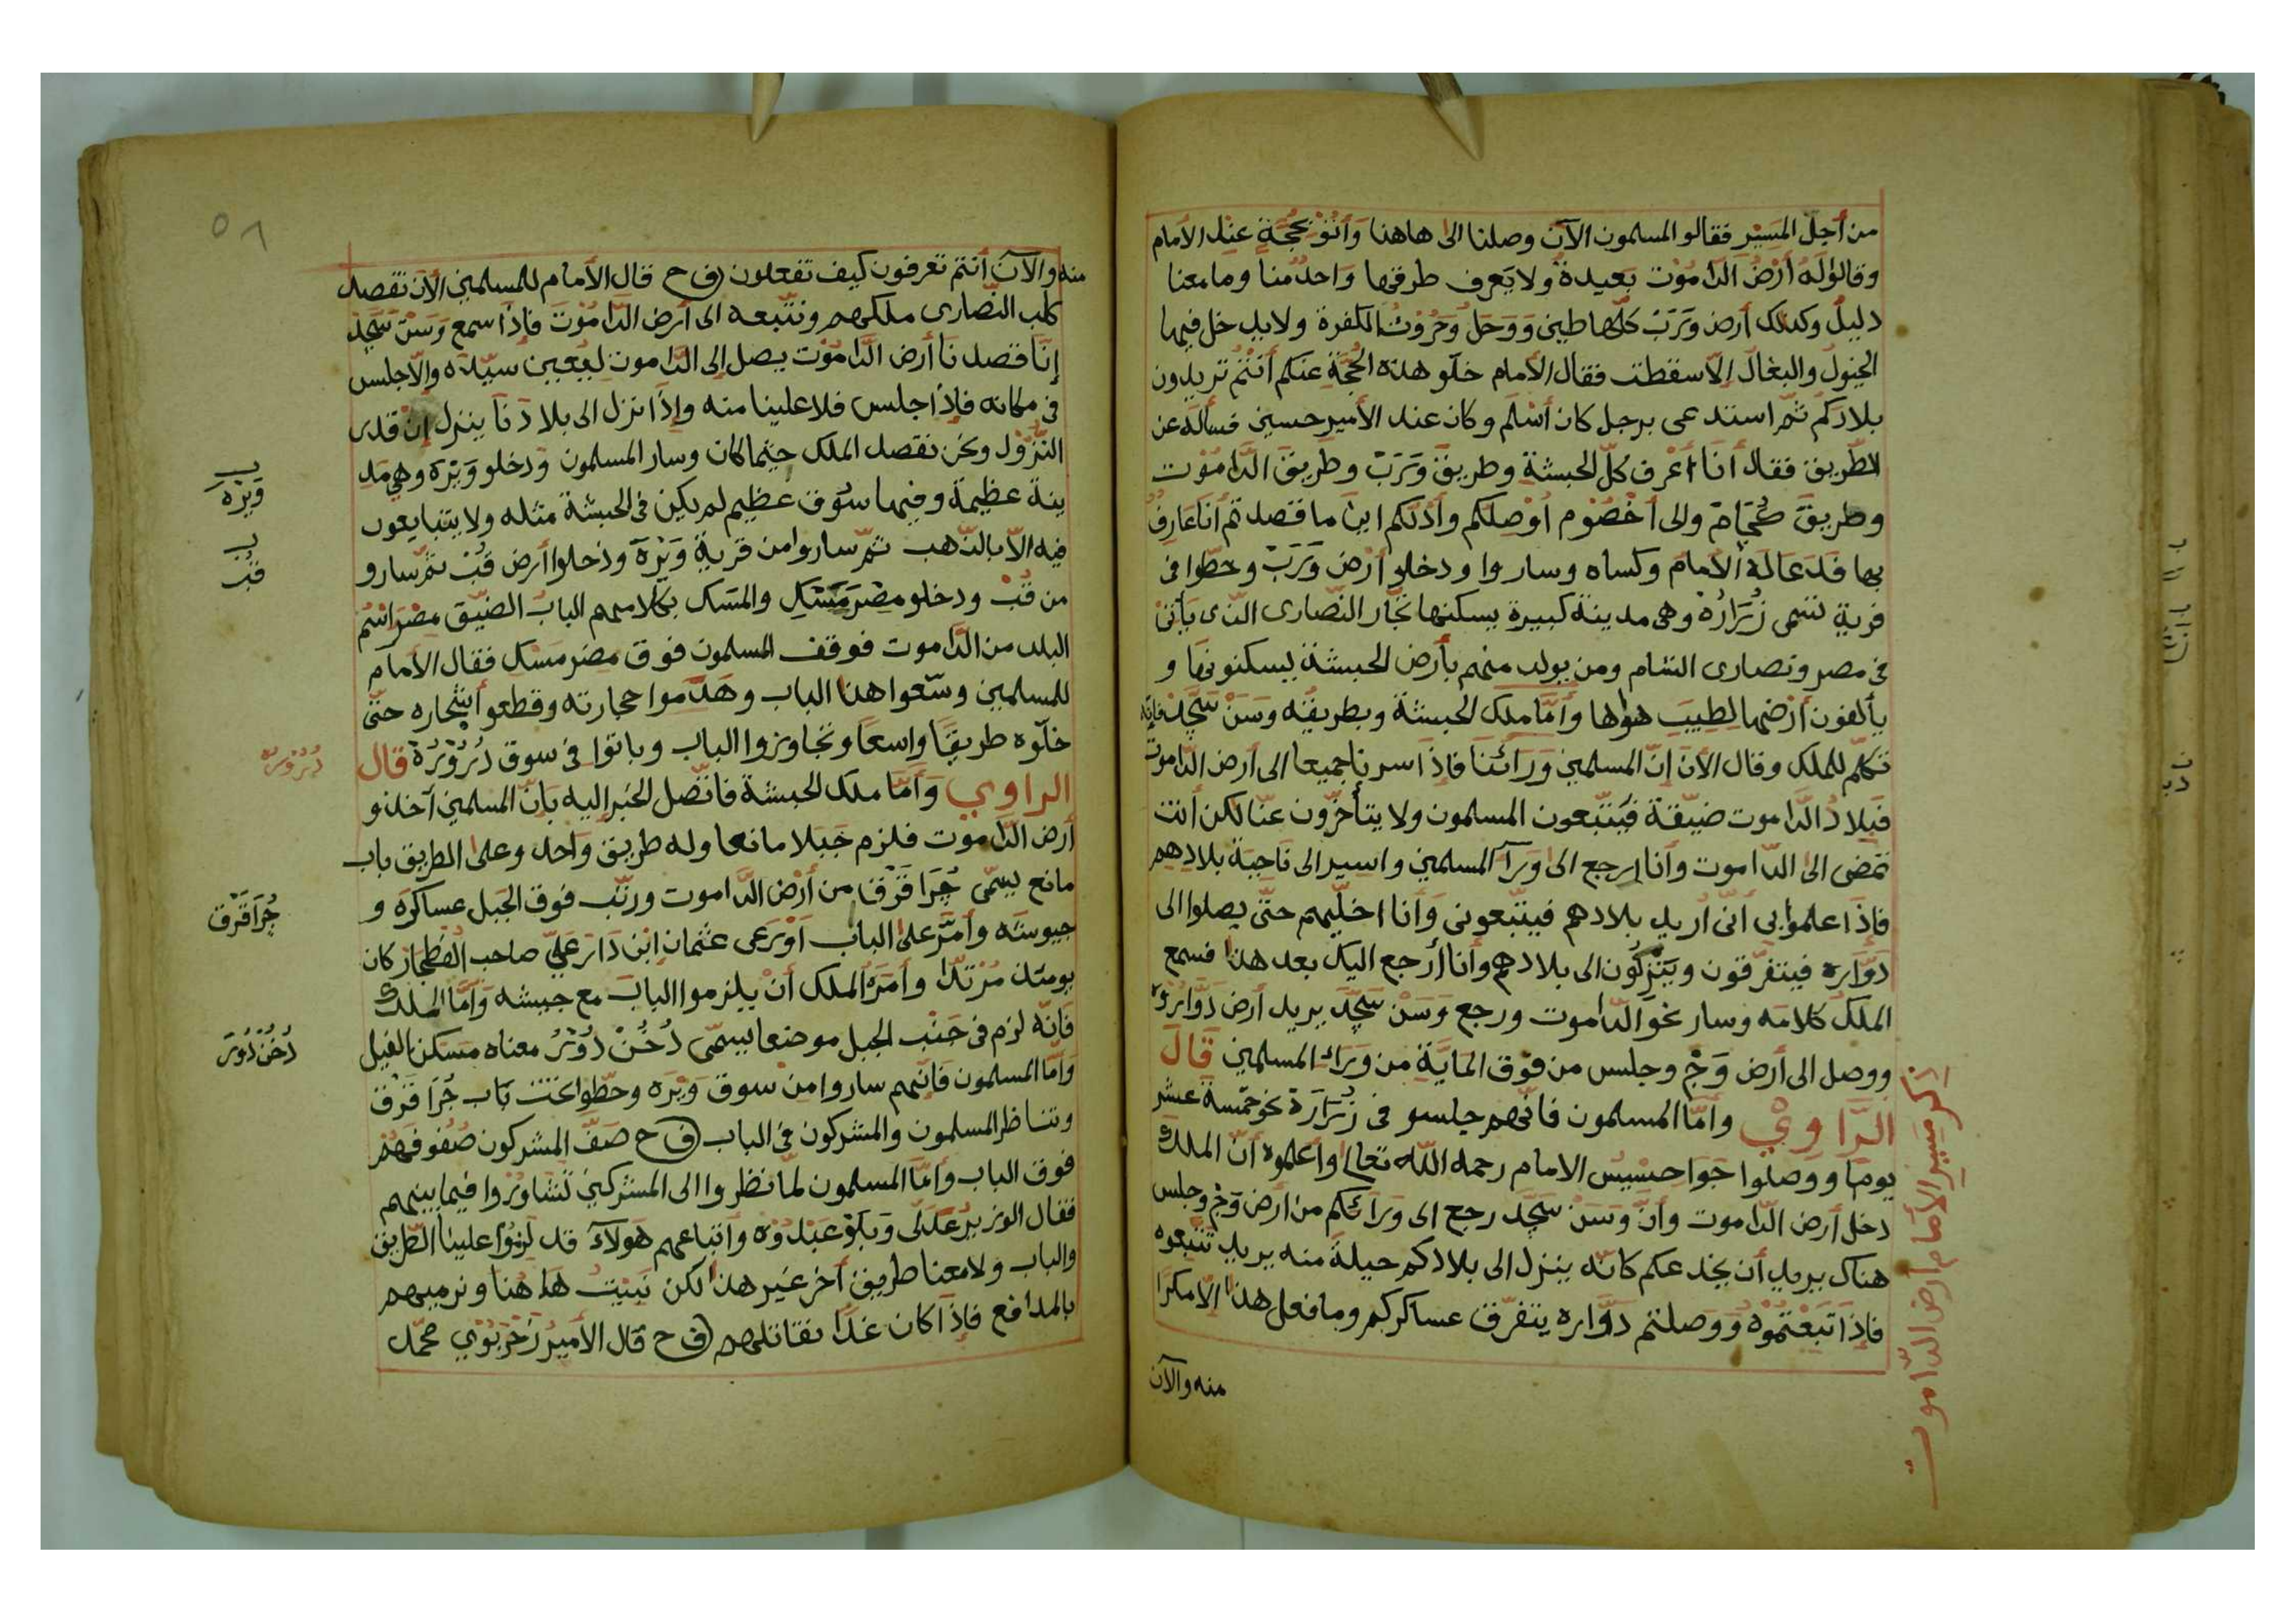 من أجل المسير فقالو المسلمون الآن وصلنا الى هاهنا وأتو بحجة عند الأمام
وقالوله أرض الداموت بعيدة ولا يعرف طرقها واحد منا وما معنا
دليل وكذلك أرض ورب كلها طين ووحل وحروث الكفرة ولا يدخل فيها
الخيول والبغال إلا سقطت فقال الأمام خلو هذه الحجة عنكم أنتم تريدون
بلادكم ثم استدعى برجل كان أسلم وكان عند الأمير حسين فسأله عن
الطريق فقال أنا أعرف كل الحبشة وطريق ورب وطريق الداموت
وطريق والى أخصوم أوصلكم وأدلكم اين ما قصدتم أنا عارف
بها فدعا له الأمام وكساه وساروا ودخلو أرض ورب وحطوا في
قرية تسمى زرارة وهي مدينة كبيرة يسكنها تجار النصارى الذي يأتي
في مصر ونصارى الشام ومن يولد منهم بأرض الحبشة يسكنونها و
يألفون أرضها لطيب هواها وأما ملك الحبشة وبطريقه وسن سجد فإنه
تكلم للملك وقال الآن إن المسلمين ورائنا فإذا سرنا جميعا الى أرض الداموت
فبلاد الداموت ضيقة فيتبعون المسلمون ولا يتأخرون عنا لكن أنت
تمضى الى الداموت وأنا ارجع الى ورآ المسلمين واسير الى ناحية بلادهم
فإذا علموا بي انّى اريد بلادهم فيتبعونى وأنا اخليهم حتى يصلوا الى
دواره فيتفرقون ويتركون الى بلادهم وأنا أرجع اليك بعد هذا فسمع
الملك كلامه وسار نحو الداموت ورجع وسن سجد يريد أرض دواره
ووصل الى أرض وج وجلس من فوق الماية من وراء المسلمين قال
الراوي وأما المسلمون فانهم جلسو في زرارة نحو خمسة عشر
يوما ووصلوا جواسيس الامام رحمه الله تعالى وأعلموه أن الملك
دخل أرض الداموت وأن وسن سجد رجع الى ورائكم من أرض وج وجلس
هناك يريد أن يخدعكم كانه ينزل الى بلادكم حيلة منه يريد تتبعوه
فإذا تبعتموه ووصلتم دواره يتفرق عساكركم وما فعل هذا الا مكرا
منه والآن
ذكر مسير الأمام أرض الداموت
٥٨
منه والآن أنتم تعرفون كيف تفعلون (ف ح قال الأمام للمسلمين الآن نقصد
كلب النصارى ملكهم ونتبعه الى أرض الداموت فإذا سمع وسن سجد
إنا قصدنا أرض الداموت يصل إلى الداموت ليعين سيده والا جلس
في مكانه فإذا جلس فلا علينا منه وإذا نزل الى بلادنا ينزل إن قدر
النزول ونحن نقصد الملك حيثما كان وسار المسلمون ودخلو وبره وهي مد
ينة عظيمة وفيها سوق عظيم لم يكن في الحبشة مثله ولا يتبايعون
فيه الا بالذهب ثم ساروا من قرية وبره ودخلوا أرض قب ثم سارو
من قب ودخلو مصر مسك والمسك بكلامهم الباب الضيق مصر اسم
البلد من الداموت فوقف المسلمون فوق مصر مسك فقال الأمام
للمسلمين وسعوا هذا الباب وهدموا حجارته وقطعو أشجاره حتى
خلوه طريقا واسعا وتجاوزوا الباب وباتوا في سوق دروره قال
الراوي وأما ملك الحبشة فاتصل الخبر اليه بأن المسلمين آخذو
أرض الداموت فلزم جبلا مانعا وله طريق واحد وعلى الطريق باب
مانع يسمى جرا قرق من أرض الداموت ورتب فوق الجبل عساكره و
جيوشه وأمر على الباب اورعى عثمان ابن دار علي صاحب كان
يومئذ مرتدا وأمره الملك أن يلزموا الباب مع جيشه وأما الملك
فانه لزم في جنب الجبل موضعا يسمى دخن دور معناه مسكن الفيل
وأما المسلمون فانهم ساروا من سوق وبره وحطوا تحت باب جرا قرق
وتناظر المسلمون والمشركون في الباب (ف ح صف المشركون صفوفهم
فوق الباب وأما المسلمون لما نظروا الى المشركين تشاوروا فيما بينهم
فقال الوزير عدلى وبلو عبدوه واتباعهم هولاء قد لزموا علينا الطريق
والباب ولا معنا طريق آخر غير هذا لكن نبيت ها هنا ونرميهم
بالمدافع فإذا كان غدا نقاتلهم (ف ح قال الأمير زحربوي محمد
وبره
قب
دروره
جرا قرق
دخن دور